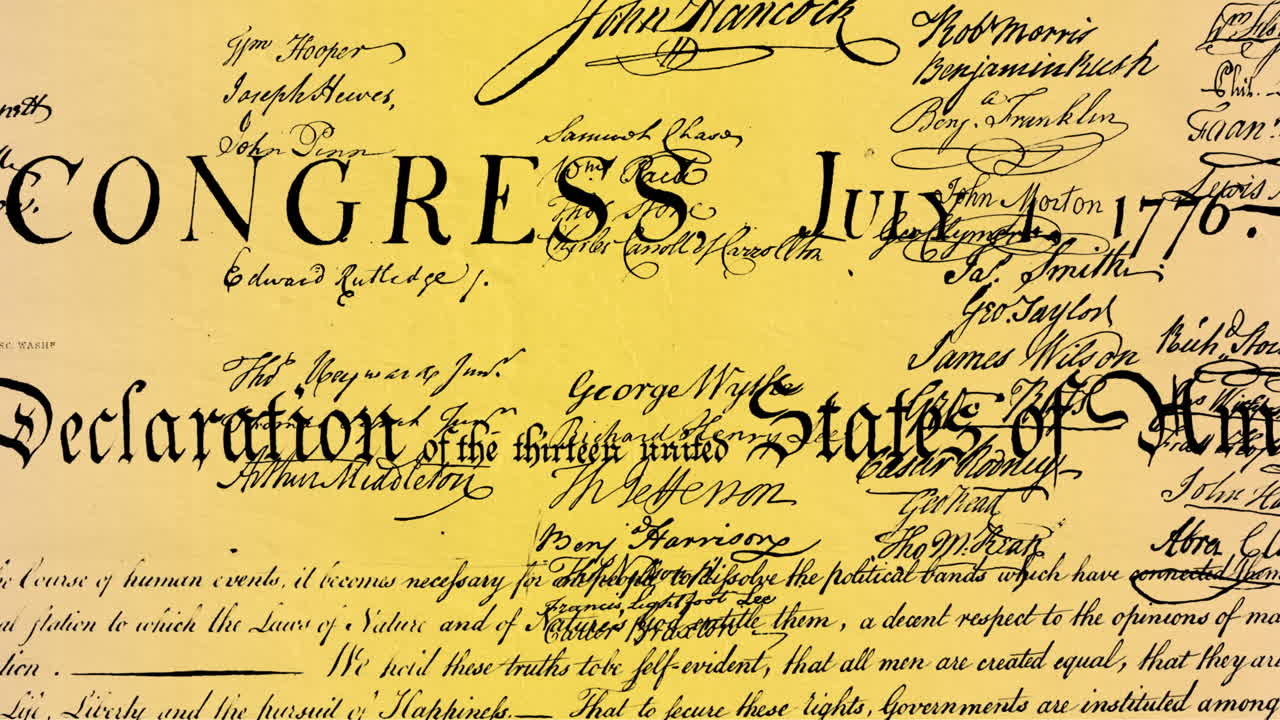 John Hancock
Wm Hooper
Joseph Hewes,
John Penn
Edward Rutledge /.
Thos Heyward Junr.
Arthur Middleton
Samuel Chase
Wm Paca
Thos Stone
Charles Carroll of Carrollton
George Wythe
Richard Henry Lee
Th Jefferson
Benj Harrison
Francis Lightfoot Lee
Carter Braxton
Robt Morris
Benjamin Rush
Benja. Franklin
John Morton
Geo Clymer
Jas. Smith
Geo. Taylor
James Wilson
Geo. Ross
Caesar Rodney
Geo Read
Tho M:Kean
Phil.
Lewis
Richd Stor
John H
Abra Cl
CONGRESS, July 4, 1776.
SC. WASHn
Declaration of the thirteen united States of Am
Course of human events, it becomes necessary for one people to dissolve the political bands which have connected them
station to which the Laws of Nature and of Nature's God entitle them, a decent respect to the opinions of
We hold these truths to be self-evident, that all men are created equal, that they are
Life, Liberty and the pursuit of Happiness.— That to secure these rights, Governments are instituted among